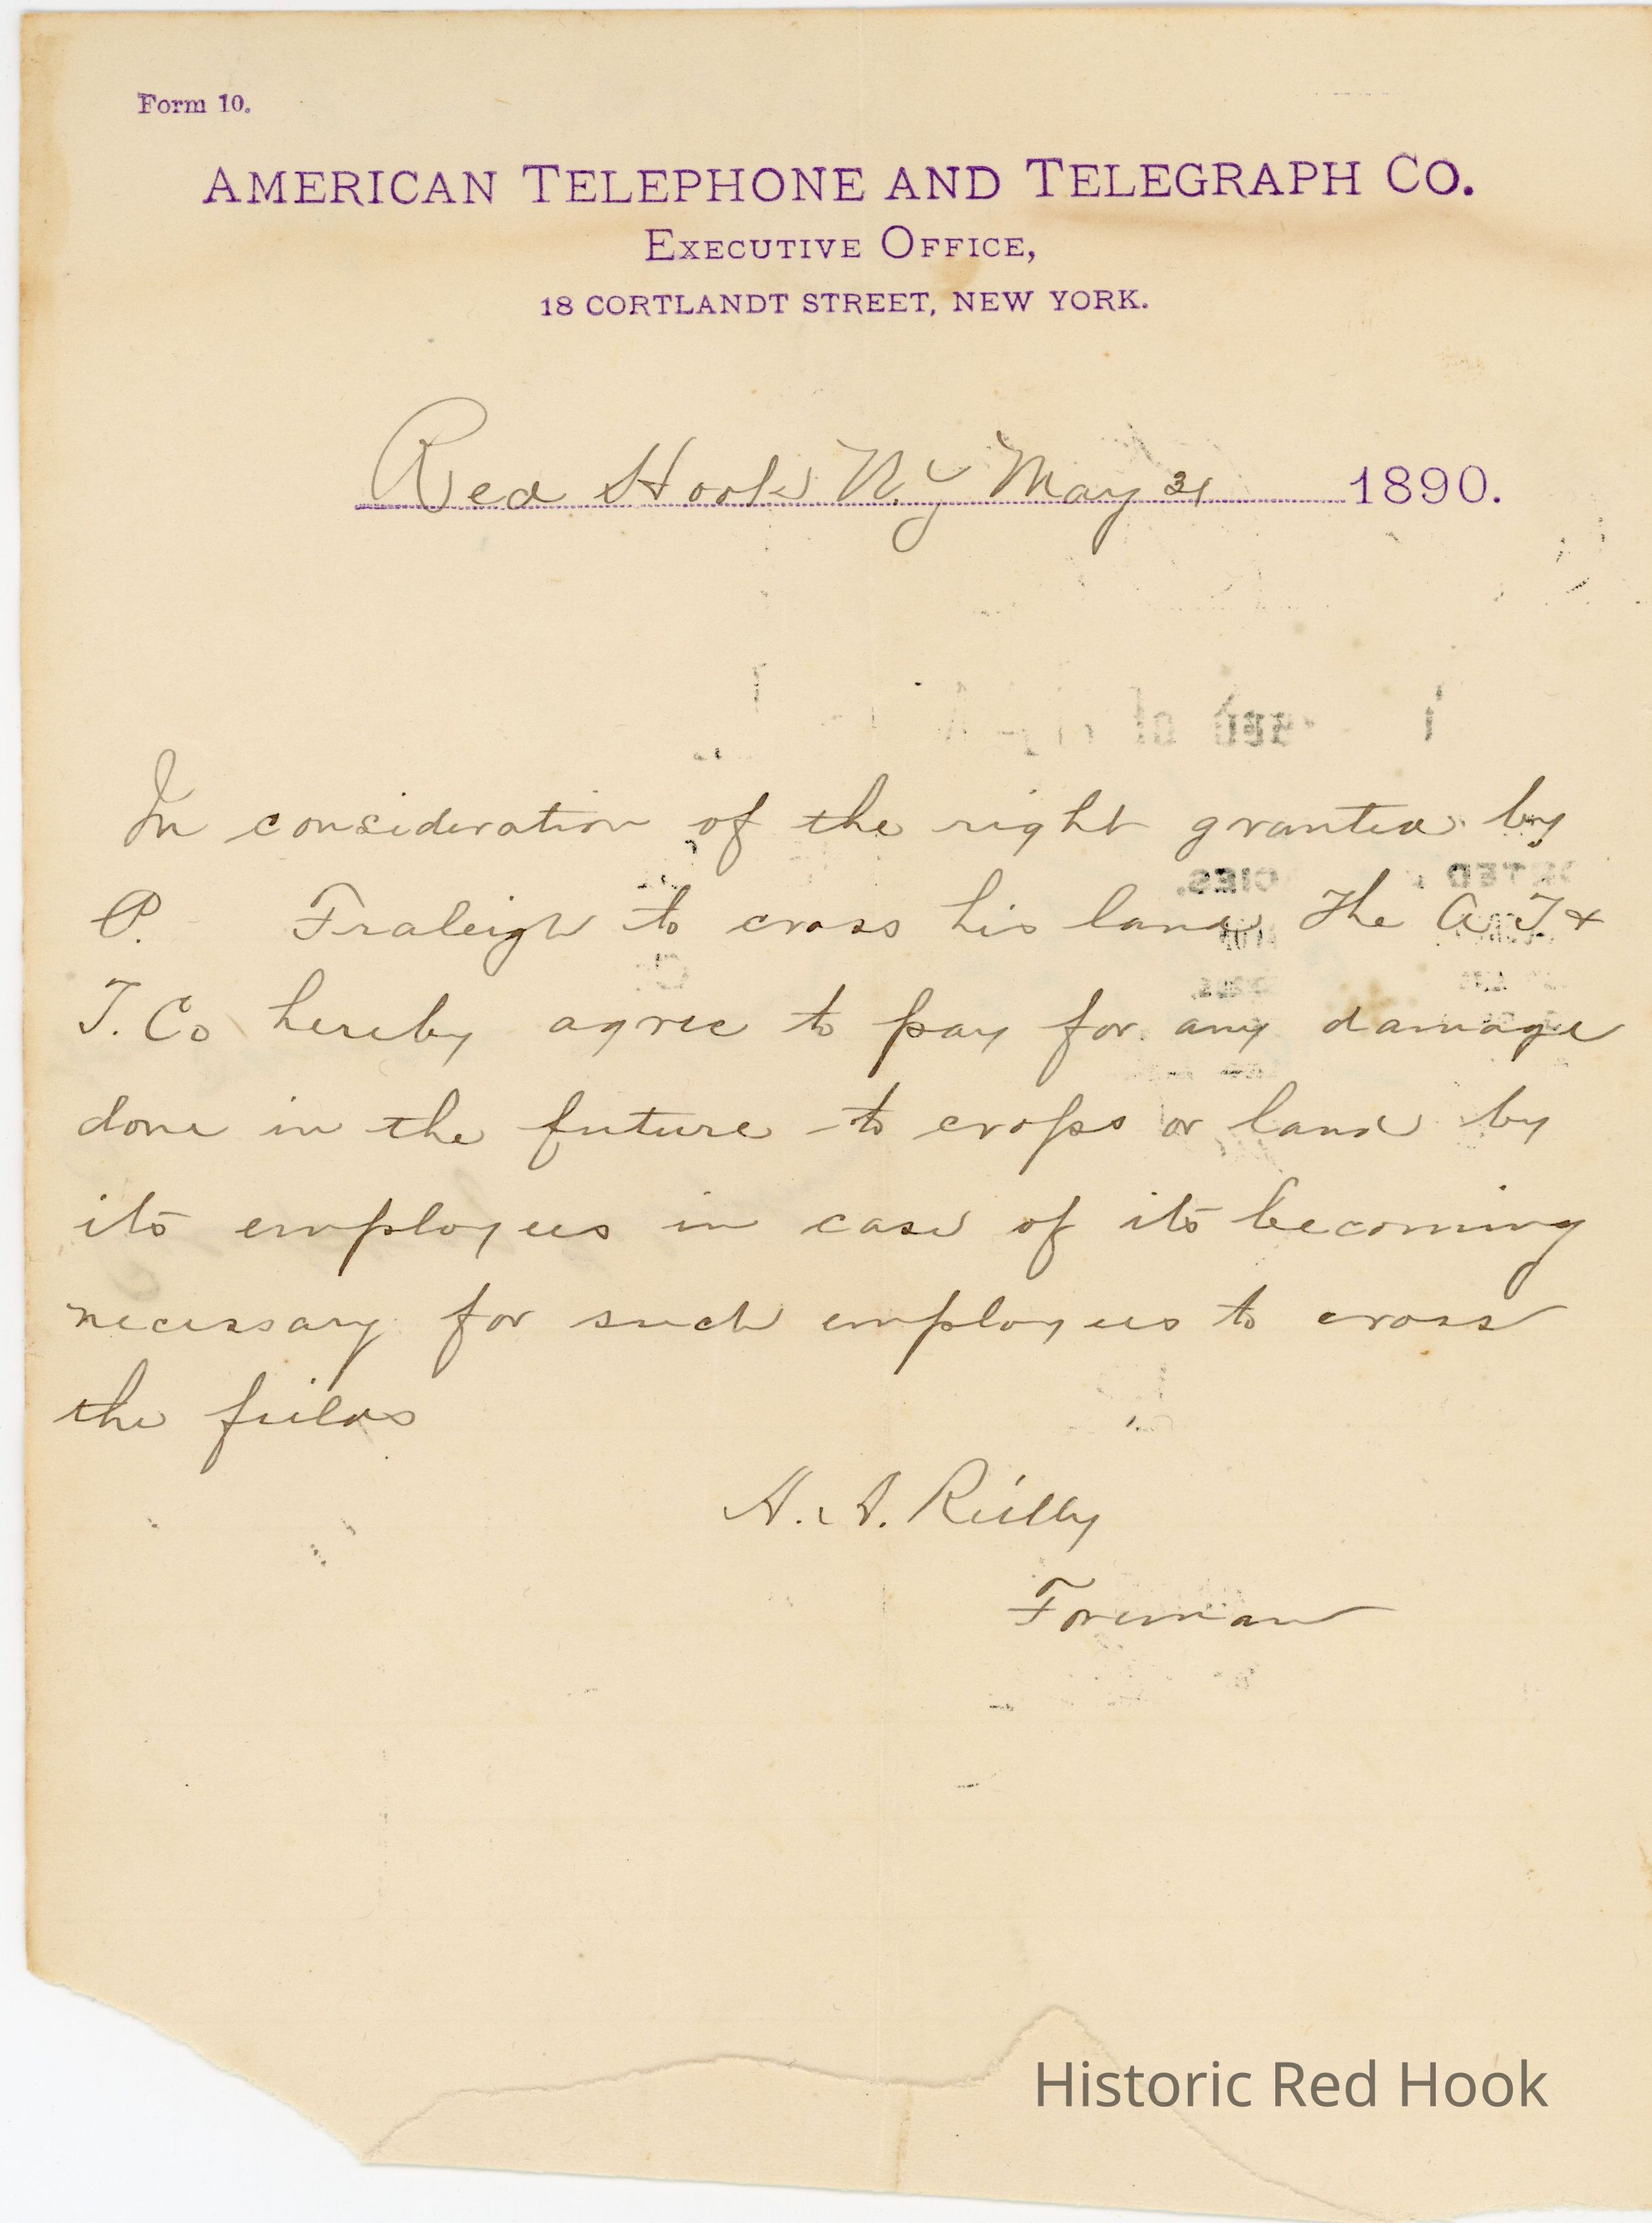 Form 10.
AMERICAN TELEPHONE AND TELEGRAPH CO.
EXECUTIVE OFFICE,
18 CORTLANDT STREET, NEW YORK.
Red Hook N.Y May 31 1890.
In consideration of the right granted by
P. Fraleigh to cross his land The A T &
T. Co hereby agree to pay for any damage
done in the future to crops or land by
its employees in case of its becoming
necessary for such employees to cross
the fields
A. A. Reilly
Foreman
Historic Red Hook